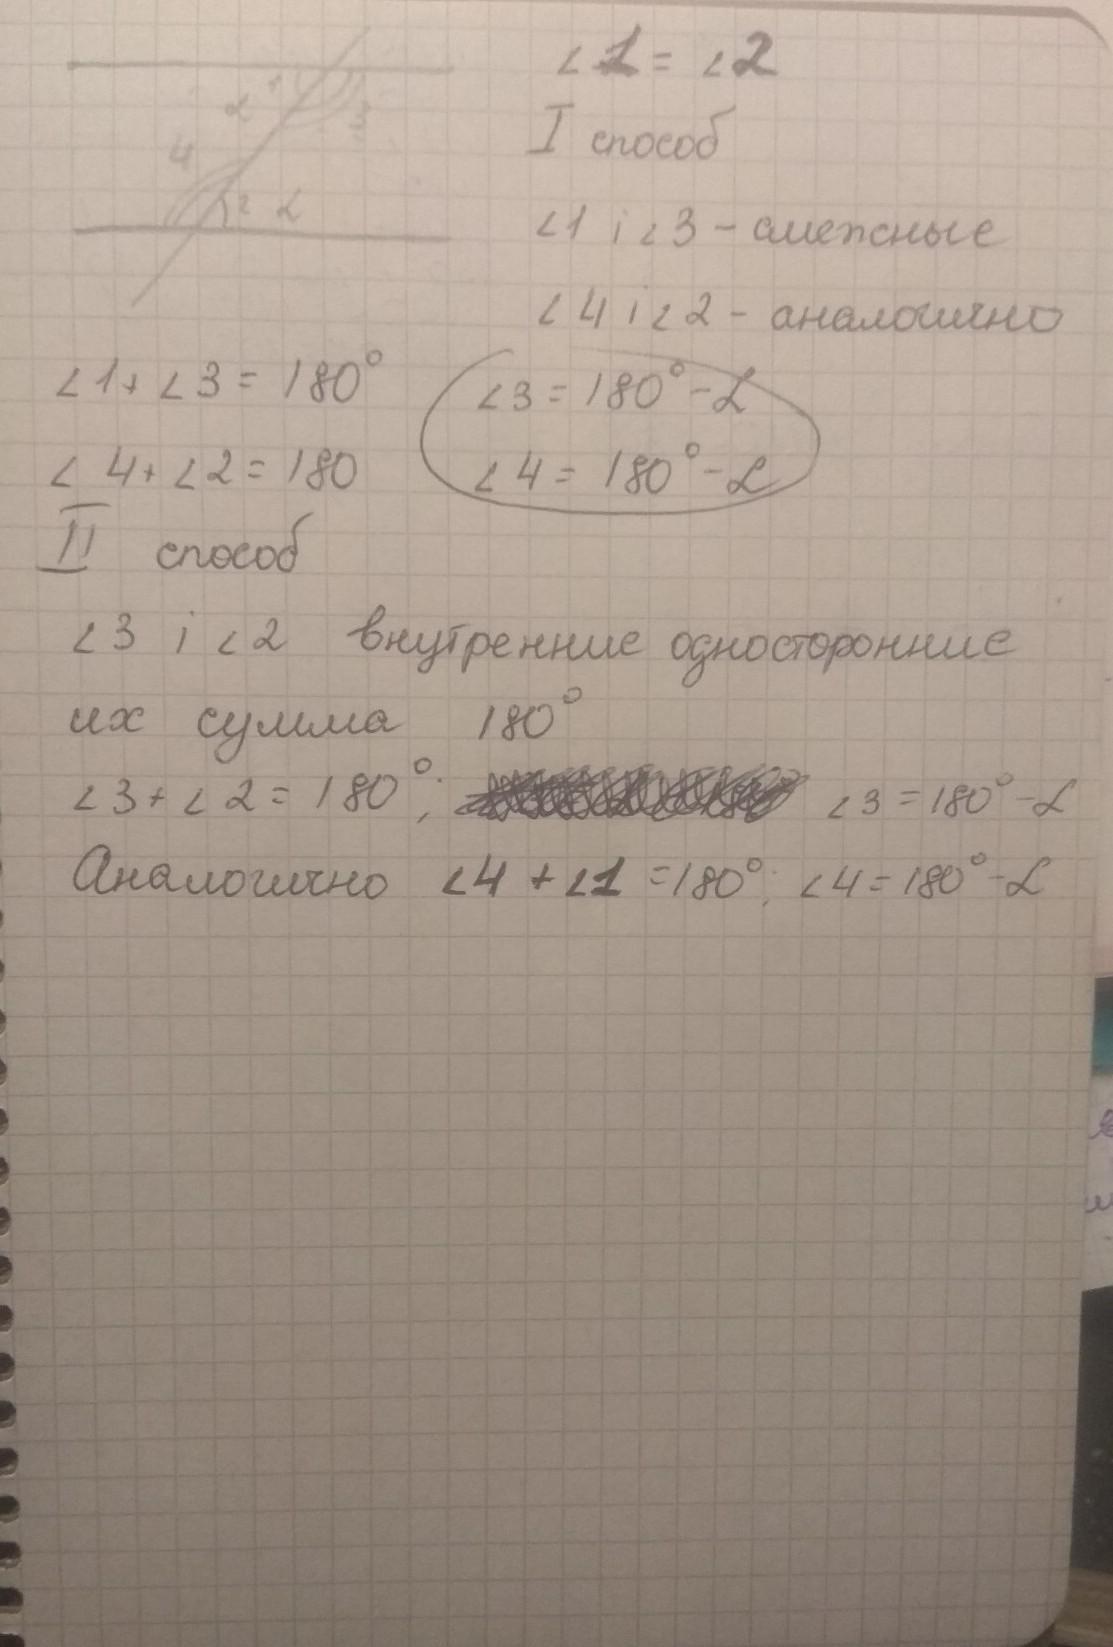 ∠1 = ∠2
I способ
∠1 i ∠3 - смежные
∠4 i ∠2 - аналогично
1
α
3
4
2 α
∠1 + ∠3 = 180° ∠3 = 180° - α
∠4 + ∠2 = 180 ∠4 = 180° - α
II способ
∠3 i ∠2 внутренние односторонние
их сумма 180°
∠3 + ∠2 = 180°; ∠3 = 180° - α
Аналогично ∠4 + ∠1 = 180°; ∠4 = 180° - α